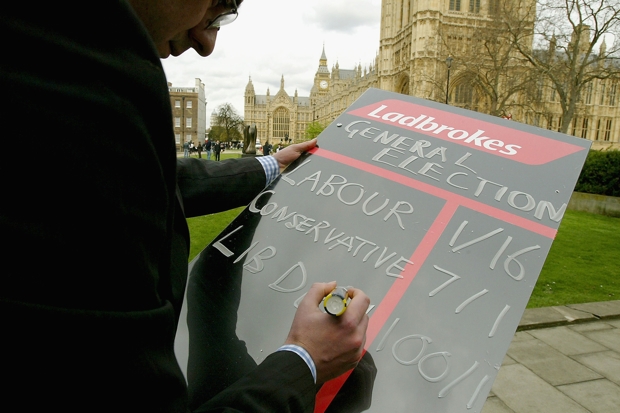 Ladbrokes
GENERAL
ELECTION
LABOUR 1/16
CONSERVATIVE 7/1
LIB DEM 100/1